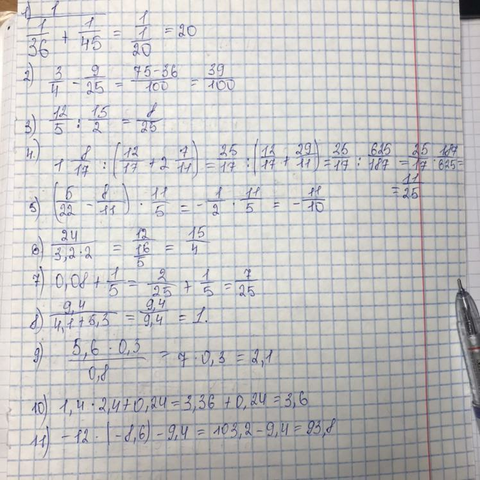 1) 1/(1/36 + 1/45) = 1/(1/20) = 20
2) 3/4 - 9/25 = (75-36)/100 = 39/100
3) 12/5 : 15/2 = 8/25
4) 1 8/17 : (12/17 + 2 7/11) = 25/17 : (12/17 + 29/11) = 25/17 : 625/187 = 25/17 · 187/625 =
= 11/25
5) (5/22 - 8/11) · 11/5 = -1/2 · 11/5 = -11/10
6) 24/(3,2·2) = 12/(16/5) = 15/4
7) 0,08 + 1/5 = 2/25 + 1/5 = 7/25
8) 9,4/(4,1+5,3) = 9,4/9,4 = 1.
9) (5,6 · 0,3)/0,8 = 7 · 0,3 = 2,1
10) 1,4 · 2,4 + 0,24 = 3,36 + 0,24 = 3,6
11) -12 · (-8,6) - 9,4 = 103,2 - 9,4 = 93,8